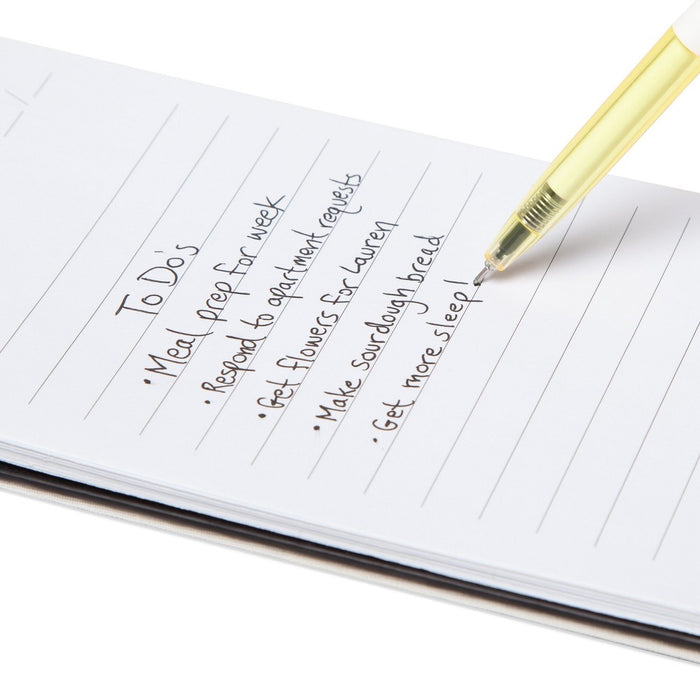 To Do's
• Meal prep for week
• Respond to apartment requests
• Get flowers for Lauren
• Make sourdough bread
• Get more sleep!